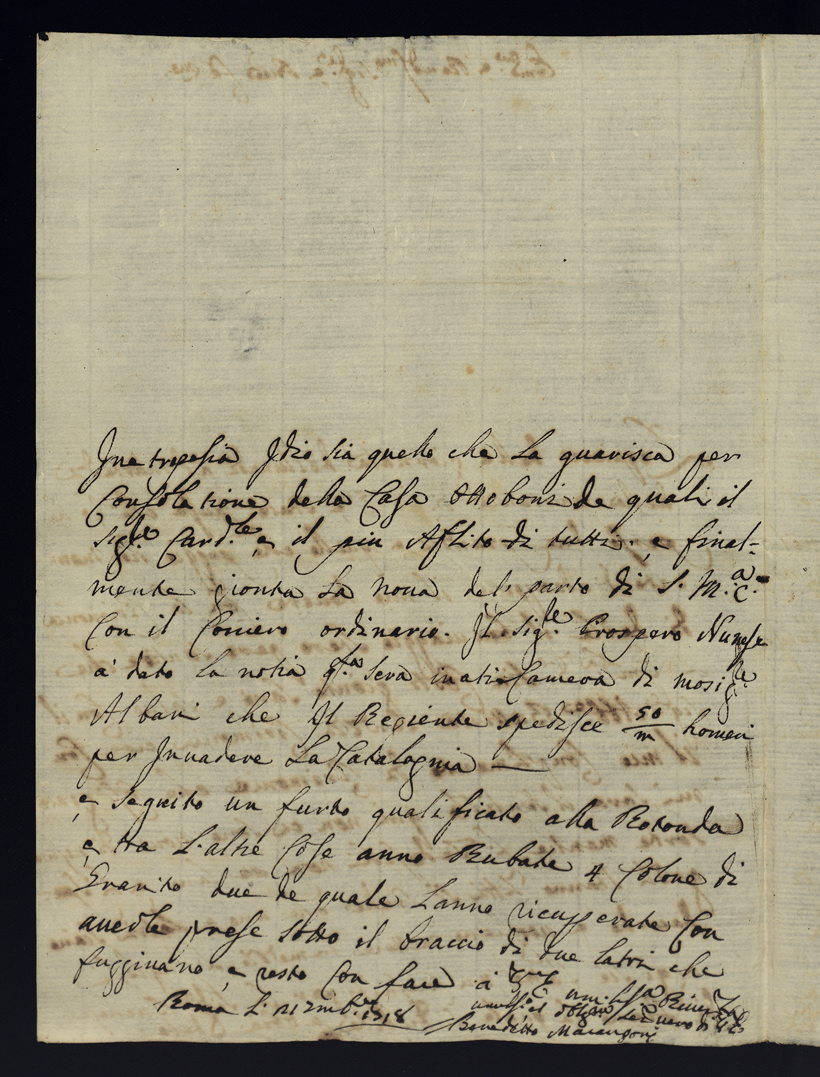 Inatropesia Idio sia quello che La guarisca per
Consolatione della Casa Ottoboni de quali il
Sig.le Card.le e il piu Aflito di tutti. e final-
mente gionta La noua del parto di S. M.a C.
Con il Coriero ordinario. Il Sig.le Prospero Nunese
a dato la notia q.ta sera in ati Camera di mosig.le
Albani che Il Regiente spedisce 50/m homeni
per Inuadere La Catalognia —
e seguito un furto qualificato alla Rotonda
e tra L'altre Cose anno Rubate 4 Colone di
Granito due de quale Lanno ricupperate Con
auerle prese sotto il braccio di due Latri che
fuggiuano e resto Con fare a
Roma L. 21 Xmb.re 1718
Benedetto Marangoni